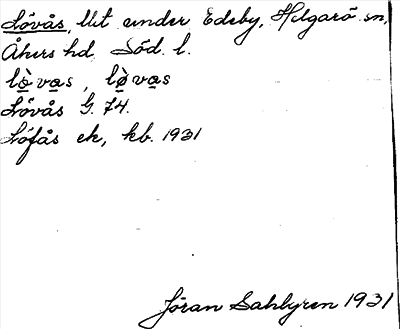 Lövås, lht under Edeby, Helgarö sn,
Åkers hd. Söd. l.
lö̀vas, lø̀vas
Lövås G. 74.
Löfås ek, kb. 1931
Jöran Sahlgren 1931